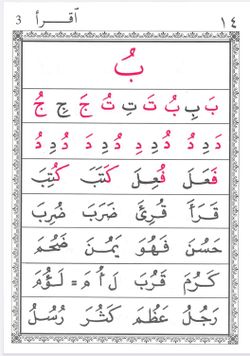 3 اقرأ ١٤
بُ
بَ بِ بُ تَ تِ تُ جَ جِ جُ
دَ دِ دُ دُ دِ دِ دُ دِ دَ دُ دِ دُ
فَعَلَ فُعِلَ كَتَبَ كُتِبَ
قَرَأَ قُرِئَ ضَرَبَ ضُرِبَ
حَسُنَ فَهُوَ يَمُنَ ضَخُمَ
كَرُمَ قَرُبَ لَ أُ مَ = لَؤُمَ
رَجُلُ عَظُمَ كَثُرَ رُسُلُ